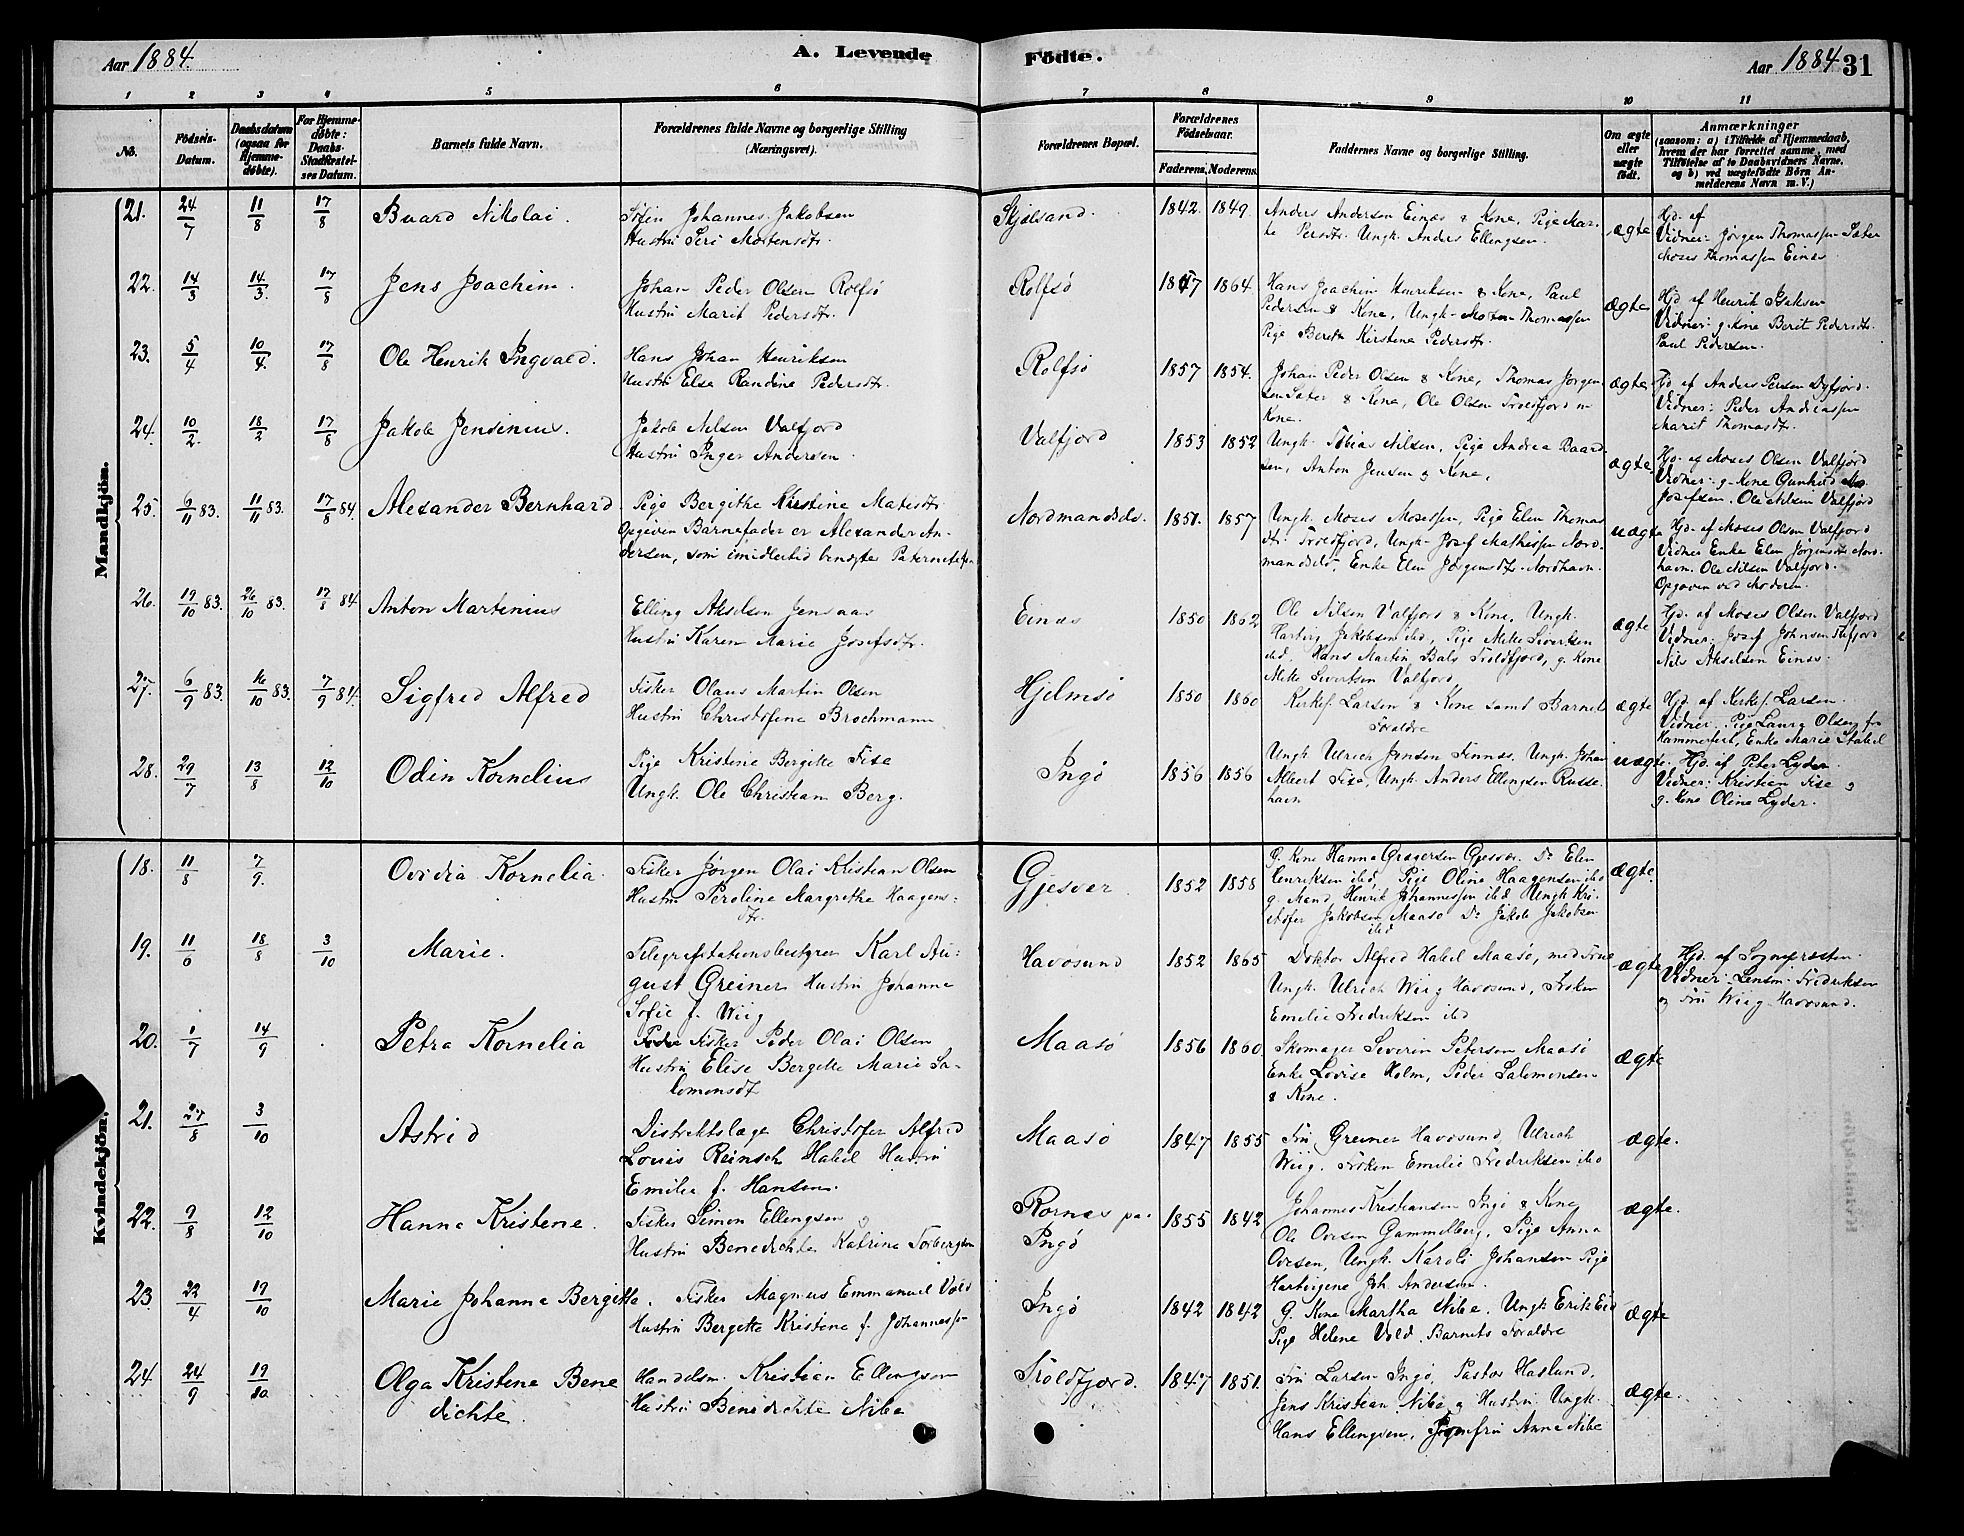 Aar 1884.
A. Levende Födte.
Aar 1884 31
1 2 3 4 5 6 7 8 9 10 11
No.
Födsels-Datum.
Daabsdatum (ogsaa for Hjemme-døbte).
For Hjemme-døbte: Daabs-Stadfæstel-ses Datum.
Barnets fulde Navn.
Forældrenes fulde Navne og borgerlige Stilling (Næringsvei).
Forældrenes Bopæl.
Forældrenes Födselsaar.
Faderens. Moderens.
Faddernes Navne og borgerlige Stilling.
Om ægte eller uægte födt.
Anmærkninger
(saasom: a) i Tilfælde af Hjemmedaab, hvem der har forrettet samme, med Tilföielse af to Daabsvidners Navne, og b) ved uægtefödte Börn An-melderens Navn m. V.)
Mandkjön.
21. 24/7 11/8 17/8 Baard Nikolai.
Johannes Jakobsen
Hustru Seri Mortensdtr.
Skjølsand. 1842. 1849.
Anders Andersen Einæs & Kone, Pige Mar-
te Persdtr. Ungk. Anders Ellingsen.
ægte
Hjd. af
Vidner: Jørgen Thomassen Sæter
Moses Thomassen Einæs
22. 14/3 14/3. 17/8 Jens Joachim.
Johan Peder Olsen Rolfsø
Hustru Marit Pedersdtr.
Rolfsø 1847 1864
Hans Joachim Henriksen & Kone, Paul
Pedersen & Kone, Ungk. Morten Thomassen
Pige Beret Kirstine Pedersdtr.
ægte
Hjd. af Henrik Isaksen
Vidner: g. Kone Berit Pedersdtr.
Paul Pedersen.
23. 5/4 10/4. 17/8 Ole Henrik Ingvald.
Hans Johan Henriksen
Hustru Elsa Randine Pedersdtr.
Rolfsø 1857 1854.
Johan Peder Olsen & Kone, Thomas Jørgen
sen Sæter & Kone, Ole Olsen Troldfjord m
Kone.
ægte
Hjd af Anders Persen Dyfjord.
Vidner: Peder Andreassen
Marit Thomasdtr.
24. 10/2. 18/2 17/8 Jakob Jensenius.
Jakob Nilsen Valfjord
Hustru Inger Andersen
Valfjord 1853 1852
Ungk. Tobias Nilsen, Pige Andrea Baard
sen, Anton Jensen & Kone,
ægte
Hjd. af Moses Olsen Valfjord
Vidner: g. Kone Gunhild
Josefsen. Ole Nilsen Valfjord
25. 6/11 83. 11/11 83. 17/8 84. Alexander Bernhard
Pige Bergithe Kirstine Matisdtr.
Opgiven Barnefader er Alexander An-
dersen, som imidlertid benægter Paterniteten
Nordmandsds. 1851. 1857
Ungk. Moses Mosessen, Pige Elen Thomas
dtr. Troldfjord, Ungk. Josef Mathissen Nord-
mandsds., Enke Elen Jørgensdtr. Nordhavn.
uægte
Hjd. af Moses Olsen Valfjord
Vidner Enke Elen Jørgensdtr Nord-
havn. Ole Nilsen Valfjord.
Opgaven ved Moderen.
26. 19/10 83. 26/10 83. 17/8 84 Anton Martinius
Elling Akselsen
Hustru Karen Marie Josefsdtr.
Einæs 1850 1862
Ole Nilsen Valfjord & Kone, Ungk.
Hartvig Jakobsen ibd, Pige Mette Sivertsen
ibd. Hans Martin Bals Troldfjord, g. Kone
Mette Sivertsen Valfjord
ægte
Hjd. af Moses Olsen Valfjord
Vidner: Josef Johnsen
Nils Akselsen Einæs.
27. 6/9 83. 16/10 83. 7/9 84. Sigfred Alfred
Fisker Olaus Martin Olsen
Hustru Christofene Brochmann
Hjelmsø 1850 1860
Kirkes. Larsen & Kone samt Barnets
Foraldre
ægte
Hjd. af Kirkes. Larsen.
Vidner: Pige Laura Olsen fra
Hammerfest, Enke Marie Stabel
28. 29/7 13/8 12/10 Odin Kornelius
Pige Kristine Bergitte Fise
Ungk. Ole Christian Berg.
Ingø 1856 1856
Ungk Ulrich Jensen Finnæs, Ungk. Johan
Albert Fise, Ungk. Anders Ellingsen Russe-
havn
uægte.
Hjd. af Peter Lyder
Vidner: Kristian Fise og
g. Kone Olina Lyder.
Kvindekjön.
18. 11/8 7/9. Ovidia Kornelia.
Fisker Jørgen Olai Kristian Olsen
Hustru Peroline Margrethe Haagens-
dtr.
Gjesvær. 1852 1858
G. Kone Hanna Gregersen Gjesvær. Do Elen
Henriksen ibd, Pige Oline Haagensen ibd
g. Mand Henrik Johannessen ibd Ungk Kri-
stofer Jakobsen Maasø Do Jakob Jakobsen
ibd
ægte.
19. 11/6 18/8 3/10 Marie.
Telegrafstationsbestyrer Karl Au-
gust Greiner Hustru Johanne
Sofie f. Wiig
Havøsund 1852 1865
Doktor Alfred Habel Maasø, med Frue
Ungk. Ulrich Wiig Havøsund, Frøken
Emilie Fredriksen ibd
ægte
Hjd. af Sognepresten.
Vidner: Lensm. Fredriksen
og Fru Wiig Havøsund.
20. 1/7 14/9 Petra Kornelia
Fisker Peder Olai Olsen
Hustru Elise Bergitte Marie Sa-
lomonsdt
Maasø 1856 1860
Skomager Severin Petersen Maasø
Enke Lovise Holm, Peder Salomonsen
& Kone.
ægte
21. 27/8 3/10 Astrid
Distriktslæge Christofer Alfred
Louis Reinsch Habel Hustru
Emilie f. Hansen.
Maasø 1847 1855
Fru Greiner Havøsund, Ulrich
Wiig. Frøken Emilie Fredriksen ibd
ægte.
22. 9/8 12/10 Hanna Kristene.
Fisker Simon Ellingsen
Hustru Benedichte Katrina Torbergsen
Rornæs paa
Ingø
1855 1842
Johannes Kristiansen Ingø & Kone
Ole Ovesen Gammelberg, Pige Anna
Ovesen, Ungk. Karoli Johansen Pige
Hartvigene Joh. Andersen.
ægte.
23. 22/4 19/10 Marie Johanna Bergitte.
Fisker Magnus Emmanuel Vold
Hustru Bergette Kristene f. Johanness.
Ingø 1842 1842
G. Kone Martha Nibe. Ungk Erik Eid
Pige Helene Vold. Barnets Foraldre
ægte
24 24/9 19/10 Olga Kristene Bene
dichte.
Handelsm. Kristian Ellingsen
Hustru Benedichte Nibe
Troldfjord. 1847 1851.
Fru Larsen Ingø, Pastor Haslund,
Jens Kristian Nibe & Hustru Ungk.
Hans Ellingsen, Jomfru Anna Nibe
ægte.